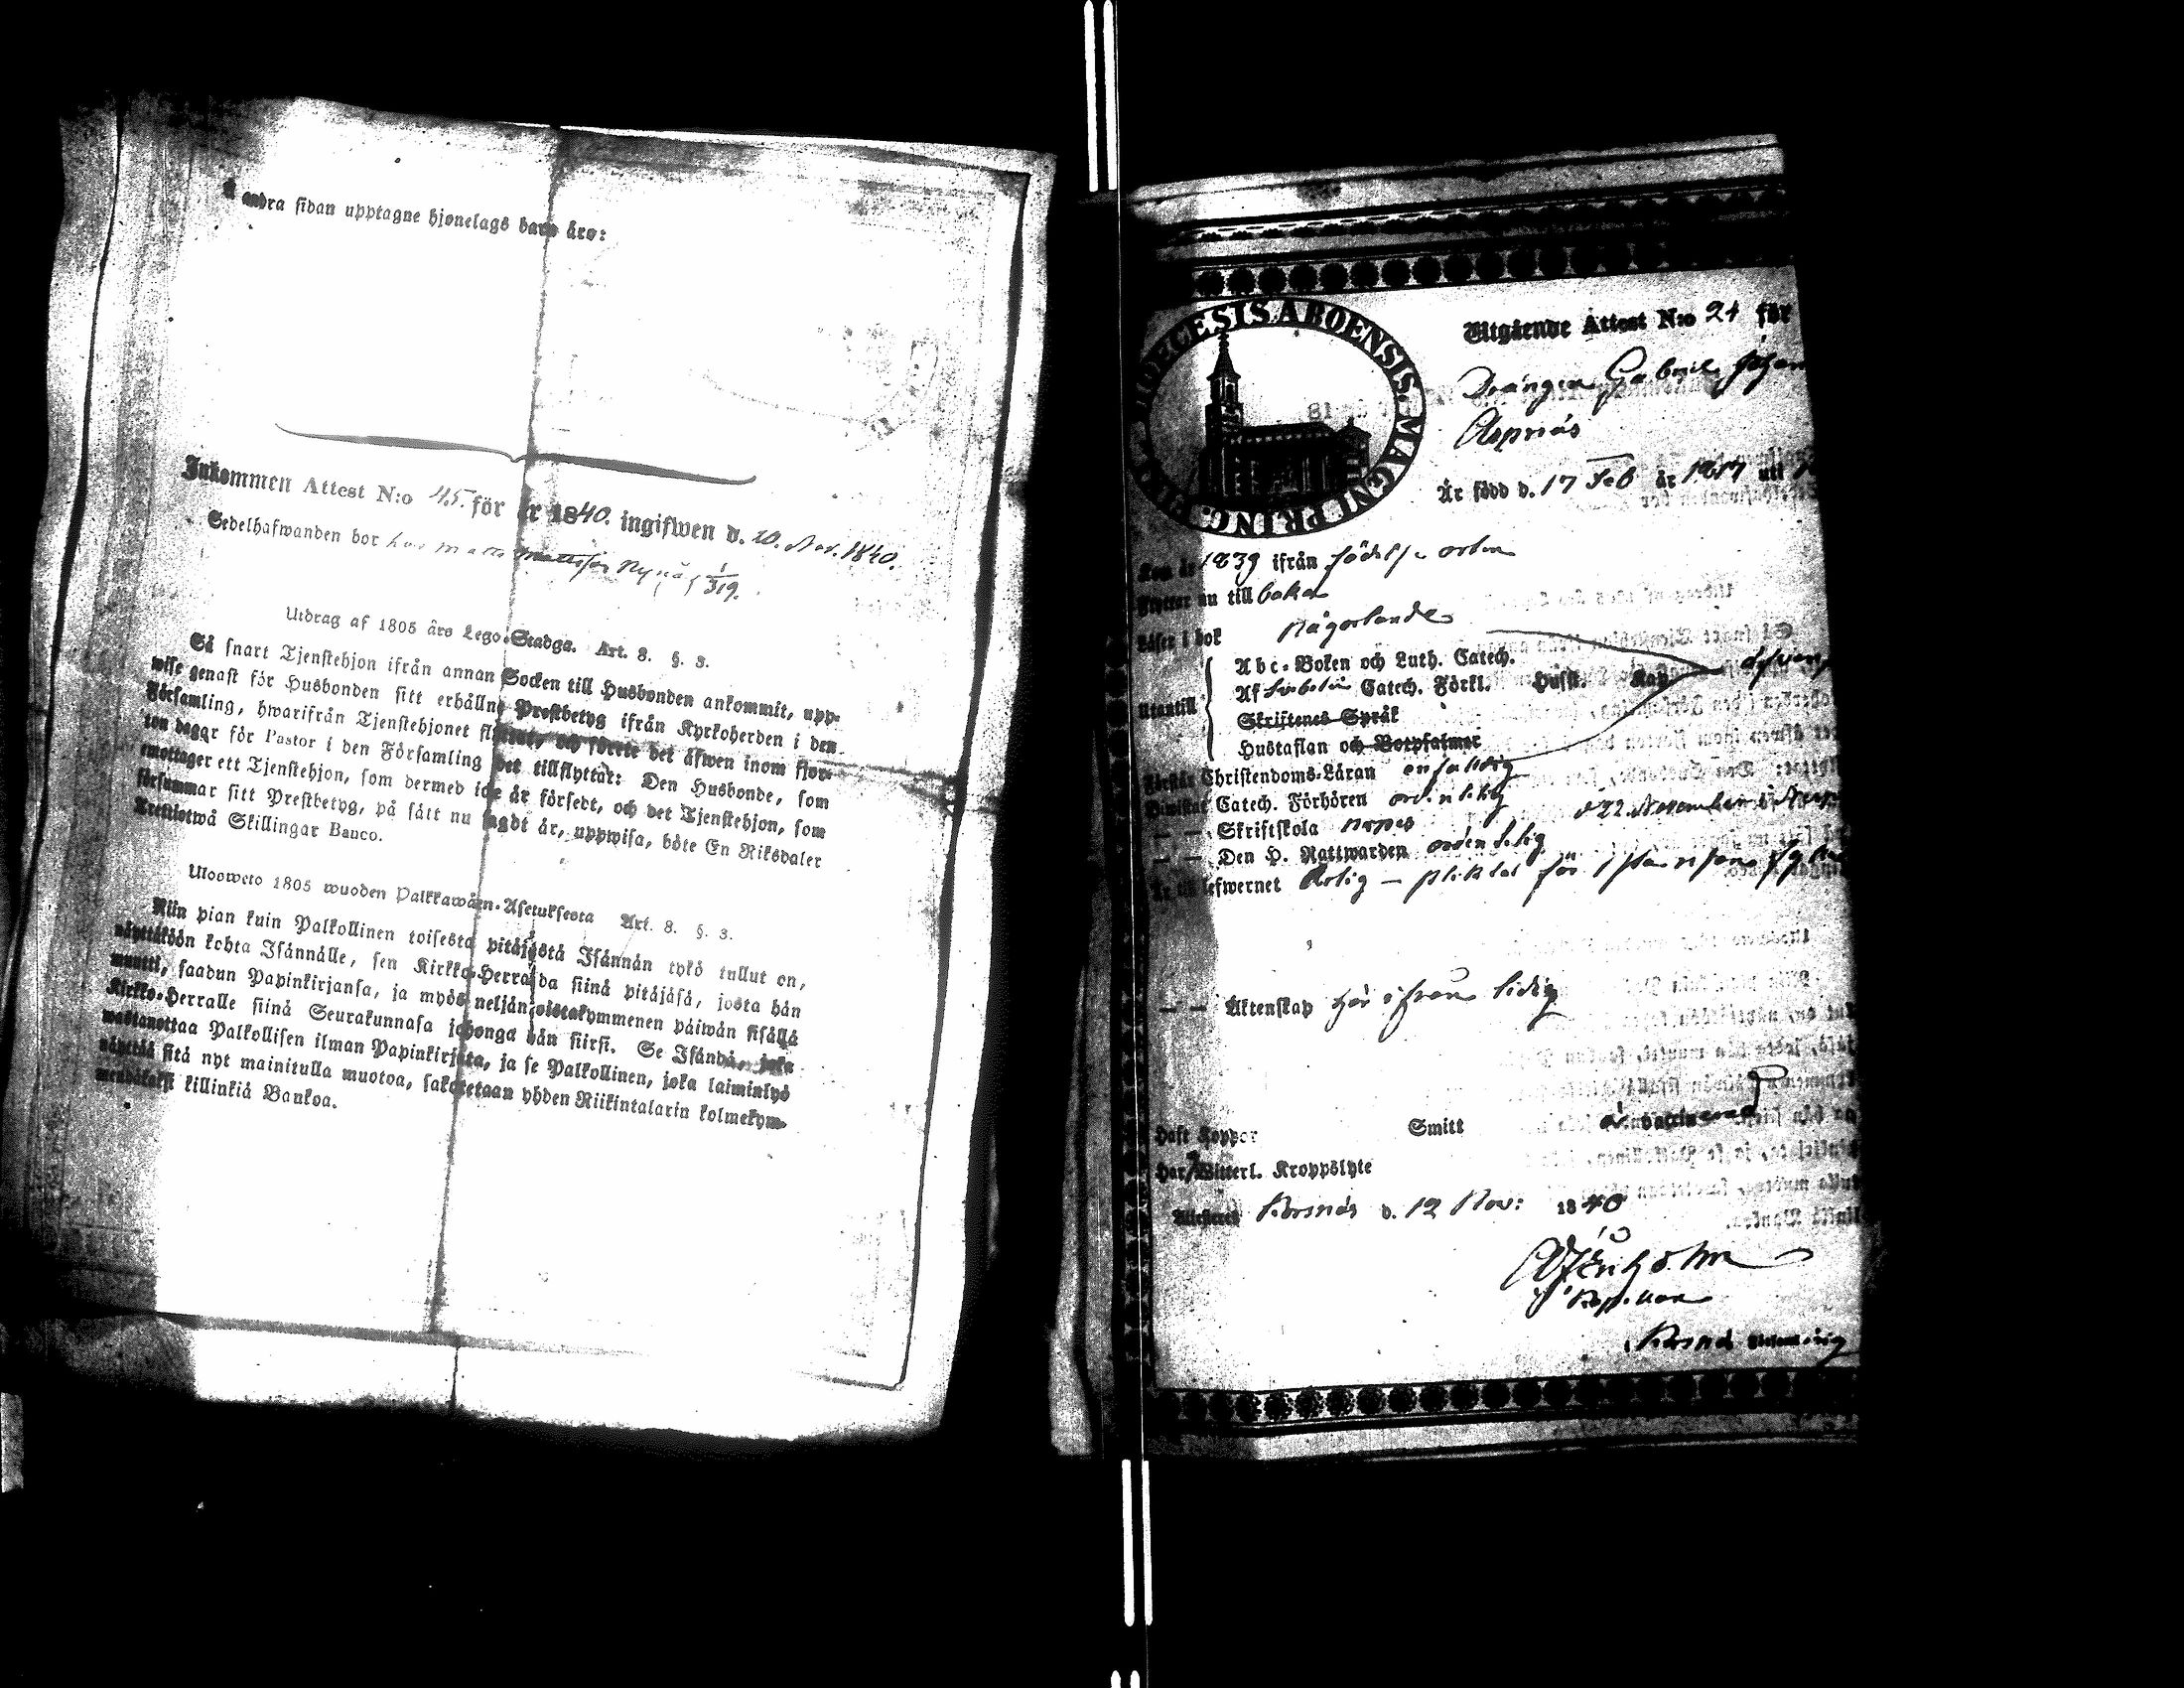 Å andra sidan upptagne hjonelags barn äro:
Inkommen Attest N:o 45. för år 1840. ingifwen d. 20. Nov. 1840.
Sedelhafwanden bor hos Matts Mattsson 1/319.
Utdrag af 1805 års Lego-Stadga. Art. 8. §. 3.
Så snart Tjenstehjon ifrån annan Socken till Husbonden ankommit, upp-
wise genast för Husbonden sitt erhållne Prestbetyg ifrån Kyrkoherden i den
Församling, hwarifrån Tjenstehjonet flyttat, och förete det äfwen inom fjor-
ton dagar för Pastor i den Församling det tillflyttat: Den Husbonde, som
emottager ett Tjenstehjon, som dermed icke är försedt, och det Tjenstehjon, som
försummar sitt Prestbetyg, på sätt nu sagdt är, uppwisa, böte En Riksdaler
Trettiotwå Skillingar Banco.
Ulosweto 1805 wuoden Palkkawäen-Asetuksesta Art. 8. §. 3.
Niin pian kuin Palkollinen toisesta pitäjästä Isännän tykö tullut on,
näyttäköön kohta Isännälle, sen Kirkko-Herralda siinä pitäjäsä, josta hän
muutti, saadun Papinkirjansa, ja myös neljäntoistakymmenen päiwän sisällä
Kirkko-Herralle siinä Seurakunnasa johonga hän siirsi. Se Isändä, joka
wastanottaa Palkollisen ilman Papinkirjata, ja se Palkollinen, joka laiminlyö
näyttää sitä nyt mainitulla muotoa, sakotetaan yhden Riikintalarin kolmekym-
mendäkaksi killinkiä Bankoa.
DIOECESIS ABOENSIS. MAGNI PRINC.
Utgående Attest N:o 24 för
Drängen Gabriel Johan
Aspnäs
Är född d. 17 Feb år 1817 uti
Kom år 1839 ifrån födelse orten
Flytter nu till baka
Läser i bok någorlunda
Abc-Boken och Luth. Catech.
Utantill Af Catech. Förkl. Hustt. Kap.
Skriftenes Språk
Hustaflan och Botpsalmer
Förstår Christendoms-Läran enfaldig
Bewistat Catech. Förhören ordentlig d 22 November
— — Skriftskola
— — Den H. Nattwarden ordentelig
Är till lefwernet Ärlig — pliktat för
— — Äktenskap här ifrån ledig
Haft Koppor Smitt
Har Witterl. Kroppslyte
Attesteras Korsnäs d. 12 Nov: 1840
Korsnäs